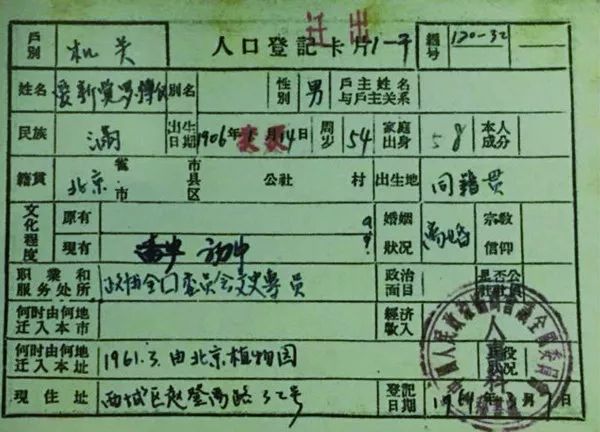 迁出
户别 机关 人口登记卡片1-平 编号 120-32
姓名 爱新觉罗溥仪 别名 性别 男 户主姓名与户主关系
民族 满 出生日期 1906年 月14日 周岁 54 家庭出身 本人成分
籍贯 北京 省市 市县区 公社 村 出生地 同籍贯
文化程度 原有 婚姻状况 离婚 宗教信仰
现有 初中
职业和服务处所 政协全国委员会文史专员 政治面目 是否公社社员
何时由何地迁入本市 经济收入
何时由何地迁入本址 1961.3.由北京植物园
现住址 西城区赵登禹路32号 登记日期 1961年3月7日
人事科